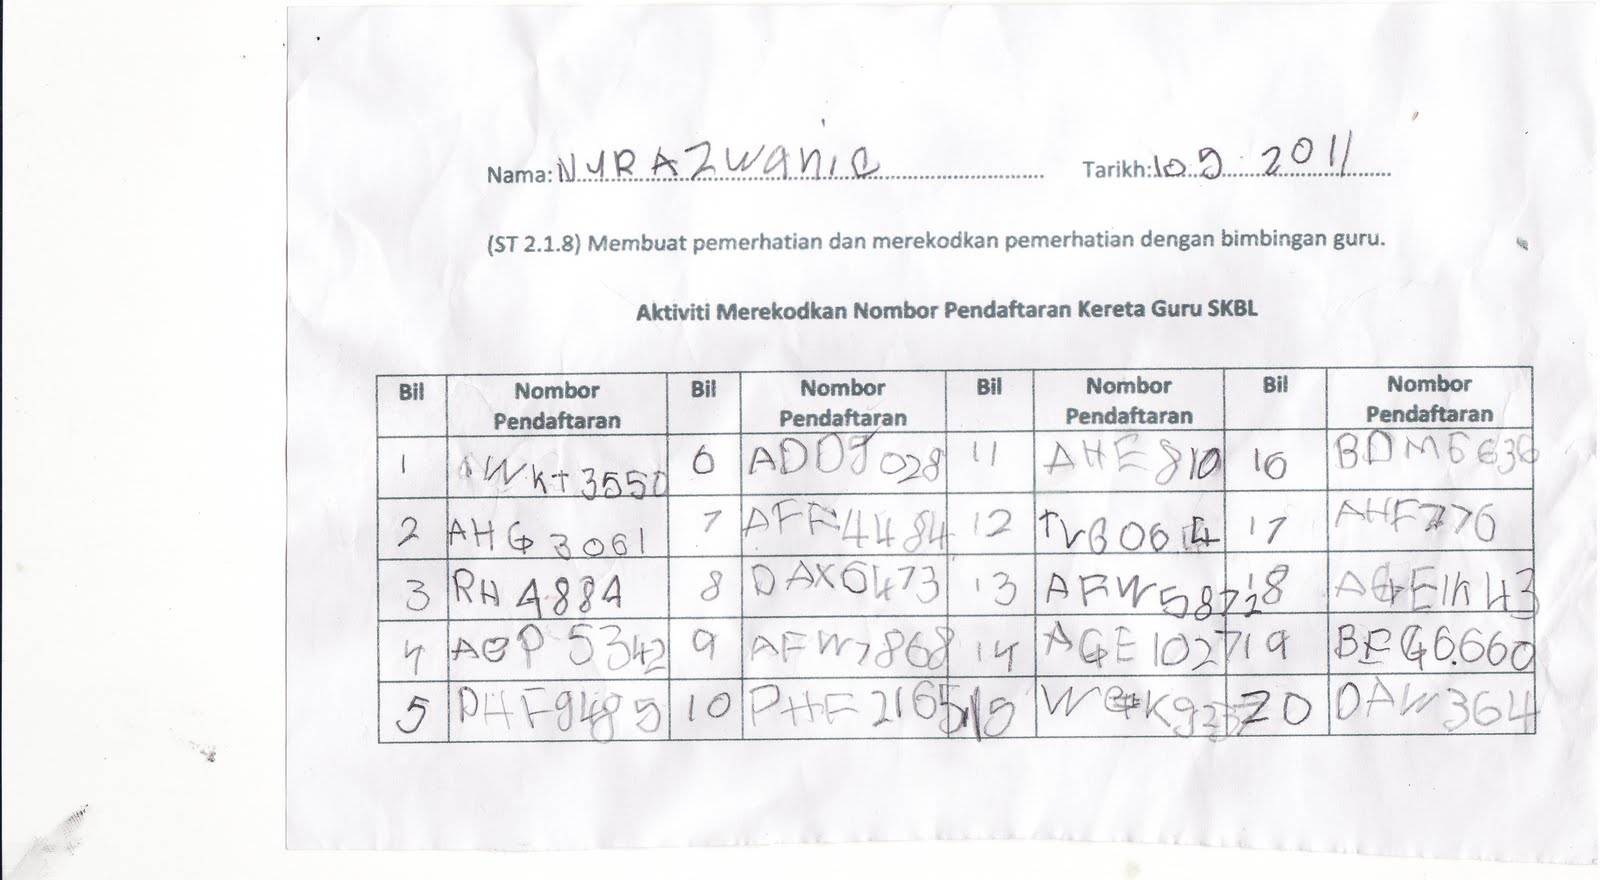 Nama: NURAZwanie Tarikh: 10 9 2011
(ST 2.1.8) Membuat pemerhatian dan merekodkan pemerhatian dengan bimbingan guru.
Aktiviti Merekodkan Nombor Pendaftaran Kereta Guru SKBL
Bil Nombor Pendaftaran Bil Nombor Pendaftaran Bil Nombor Pendaftaran Bil Nombor Pendaftaran
1 WKt 3550 6 11 AHE 810 16
2 AHG 3061 7 AFF 4484 12 17 AHF 776
3 8 DAX 6473 13 AFW 5872 18
4 5342 9 AFW 7868 14 AGE 1027 19 BFG 6.660
5 PHF 9485 10 PHF 2165 15 20 DAW 364